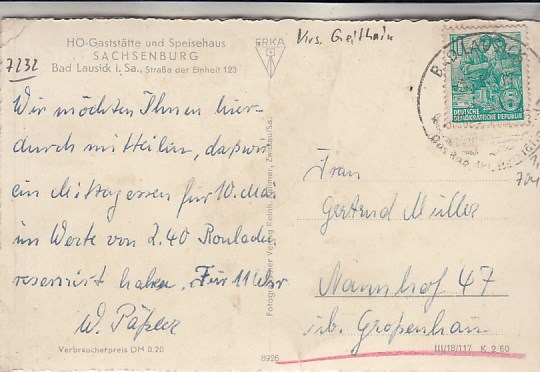 HO-Gaststätte und Speisehaus
SACHSENBURG
Bad Lausick i. Sa., Straße der Einheit 123
7232
ERKA
Krs. Geithain
Wir möchten Ihnen hier-
durch mitteilen, daß wir
ein Mittagessen für 10. Mai
im Werte von 2.40 Rouladen
reserviert haben. Für 11 Uhr
W.
Verbraucherpreis DM 0,20
Fotografischer Verlag Reinh. Zwickau/Sa.
8926
10
DEUTSCHE
DEMOKRATISCHE REPUBLIK
BAD LAUSICK
Frau
Gertrud Müller
Naunhof 47
üb. Großenhain
III/18/117 K 2 60